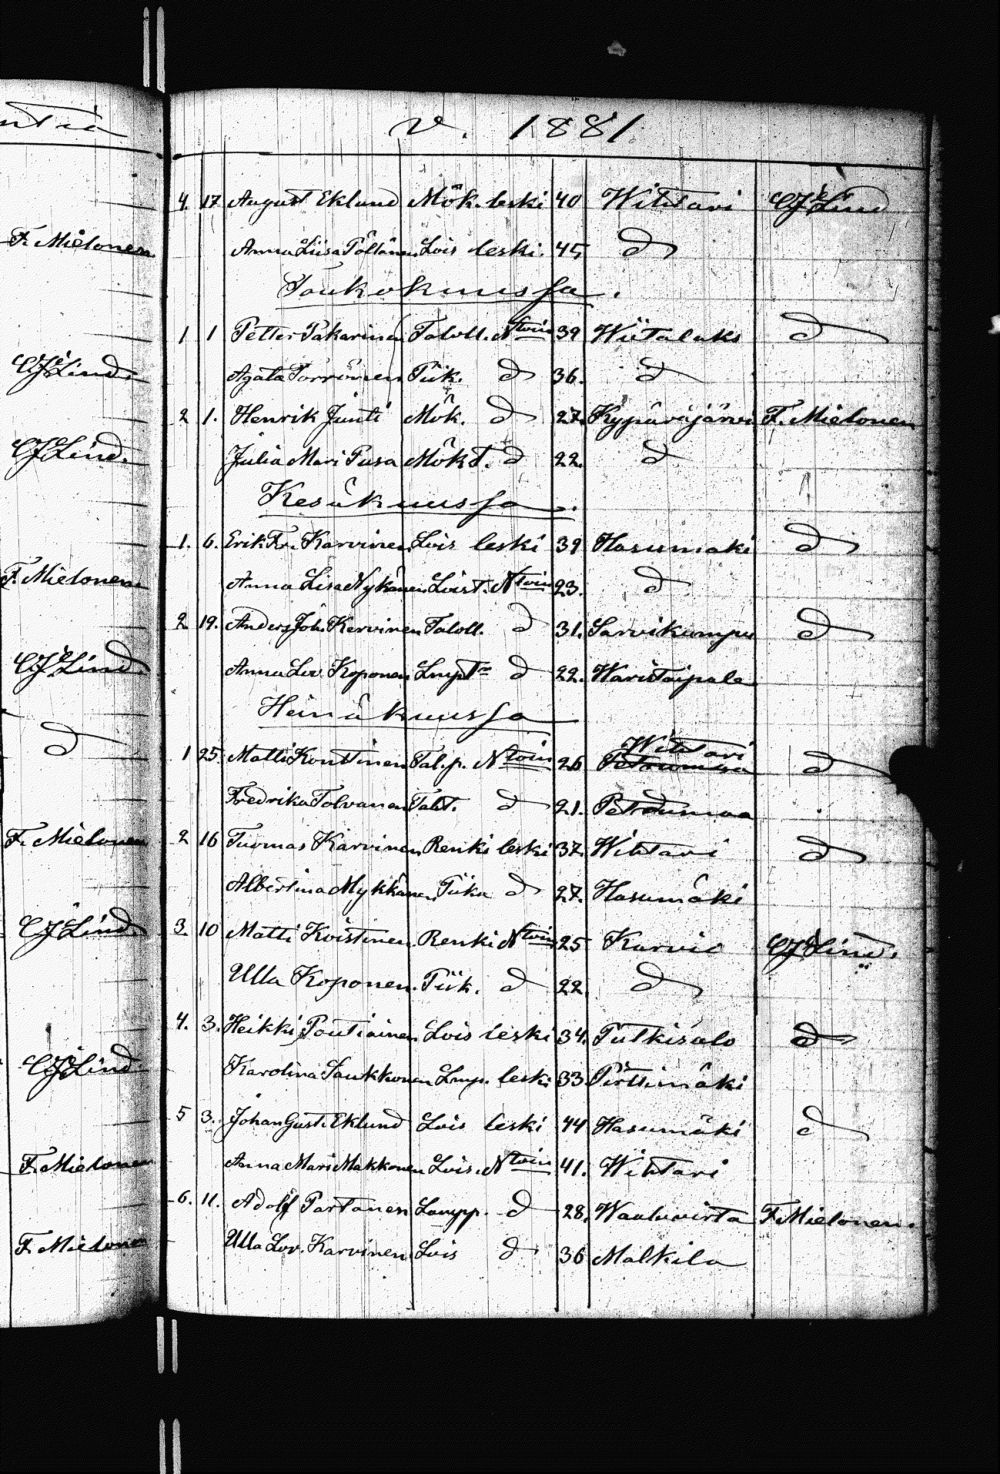 ntia
F. Mielonen
CJ Lind.
CJ Lind.
F. Mielonen
CJ Lind
d
F. Mielonen
CJ Lind
CJ Lind
F. Mielonen
F. Mielonen
v. 1881
4. 17. August Eklund Mök. leski 40 Wihtavi CJ Lind
Anna Liisa Pöllänen Lois leski. 45, d
Toukokuussa.
1 1 Petter Pakarinen Taloll. Ntoin 39 Wiitalaks d
Agata Torrönen Piik. d 36. d
2 1. Henrik Junti Mök. d 27. Kypäräjärvi F. Mielonen
Julia Mari Pusa Mökt. d 22. d
Kesäkuussa.
1. 6. Erik Fr. Karvinen Lois leski 39. Hasumäki d
Anna Lisa Nykänen Loist. Ntoin 23. d
2. 19. Anders Joh. Kervinen Taloll. d 31. Sarvikumpu d
Anna Lov. Koponen Lmpt d 22. Waristaipale
Heinäkuussa
1 25. Matti Konttinen Tal.p. Ntoin 26 Wihtavi d
Fredrika Tolvanen Talt. d 21. Petrumaa
2 16 Tuomas Karvinen Renki leski 37. Wihtavi d
Albertina Mykkänen Piika d 27. Hasumäki
3. 10 Matti Koistinen Renki Ntoin 25 Karvio CJ Lind.
Ulla Koponen. Piik. d 22. d
4. 3. Heikki Poutiainen Lois leski 34. Putkisalo d
Karolina Laukkonen Lmp. leski 33. Pirttimäki
5 3. Johan Gust. Eklund Lois leski 44 Hasumäki d
Anna Mari Makkonen Lois. Ntoin 41. Wihtavi
6. 11. Adolf Partanen Lampp. d 28, Waaluvirta F. Mielonen.
Ulla Lov. Karvinen Lois d 36 Malkila